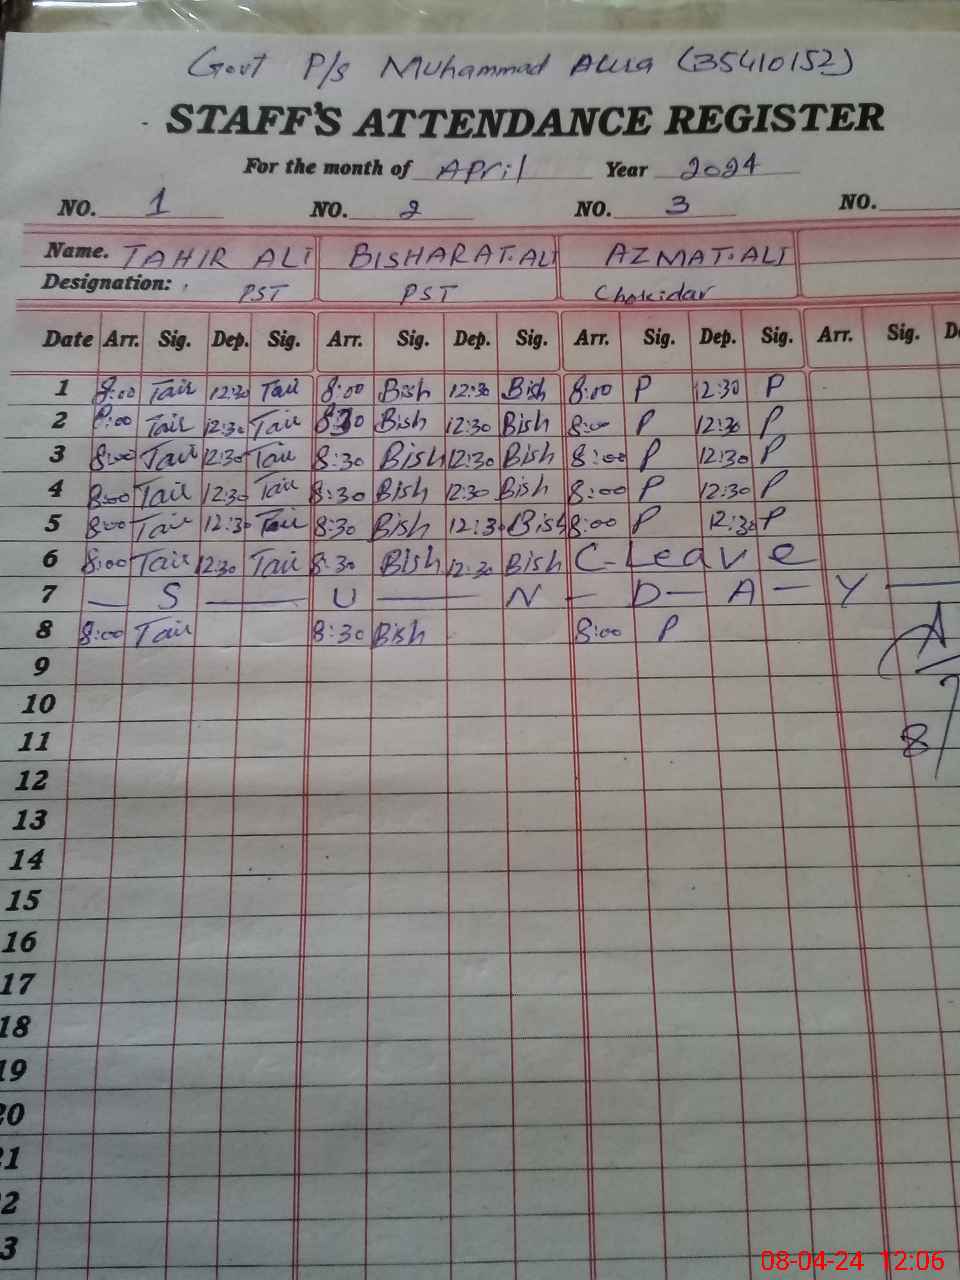 Govt P/s Muhammad Alua (35410152)
STAFF'S ATTENDANCE REGISTER
For the month of April Year 2024
NO. 1 NO. 2 NO. 3 NO.
Name. TAHIR ALI BISHARAT.ALI AZMAT.ALI
Designation: PST PST Chokidar
Date Arr. Sig. Dep. Sig. Arr. Sig. Dep. Sig. Arr. Sig. Dep. Sig. Arr. Sig. D
1 8:00 Tair 12:30 Tair 8:00 Bish 12:30 Bish 8:00 P 12:30 P
2 8:00 Tair 12:30 Tair 8:30 Bish 12:30 Bish 8:00 P 12:30 P
3 8:00 Tair 12:30 Tair 8:30 Bish 12:30 Bish 8:00 P 12:30 P
4 8:00 Tair 12:30 Tair 8:30 Bish 12:30 Bish 8:00 P 12:30 P
5 8:00 Tair 12:30 Tair 8:30 Bish 12:30 Bish 8:00 P 12:30 P
6 8:00 Tair 12:30 Tair 8:30 Bish 12:30 Bish C-Leave
7 — S — U — N — D — A — Y —
8 8:00 Tair 8:30 Bish 8:00 P
9
10
11 8/
12
13
14
15
16
17
18
19
20
21
2
3
08-04-24 12:06